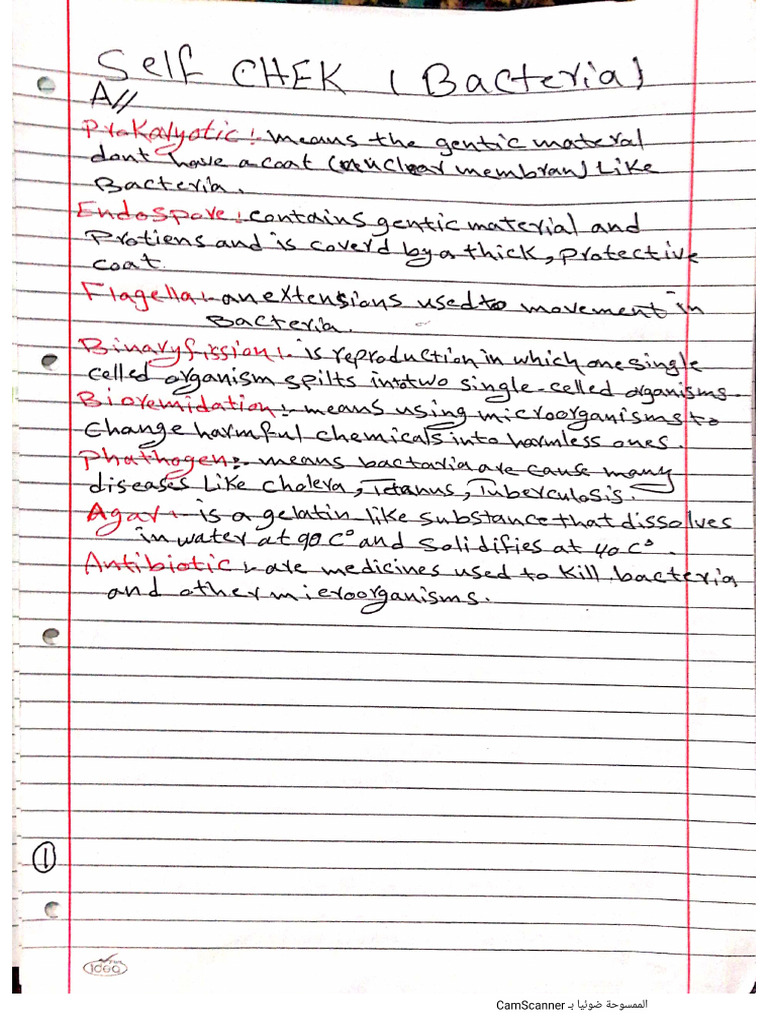 Self CHEK (Bacteria)
A//
Prokalyotic:- means the gentic materal
dont have a coat (a nuclear membran) Like
Bacteria.
Endospore:- contains gentic material and
Protiens and is coverd by a thick, protective
coat.
Flagella:- an extensions used to movement in
Bacteria.
Binary fission:- is reproduction in which one single
celled organism spilts into two single-celled organisms.
Bioremidation:- means using microorganisms to
Change harmful chemicals into harmless ones.
Phathogen:- means bactaria are cause many
diseases Like cholera, Tetanus, Tuberculosis.
Agar:- is a gelatin like substance that dissolves
in water at 90 C° and Solidifies at 40 C°.
Antibiotic:- are medicines used to Kill bacteria
and other microorganisms.
1
idea
الممسوحة ضوئيا بـ CamScanner